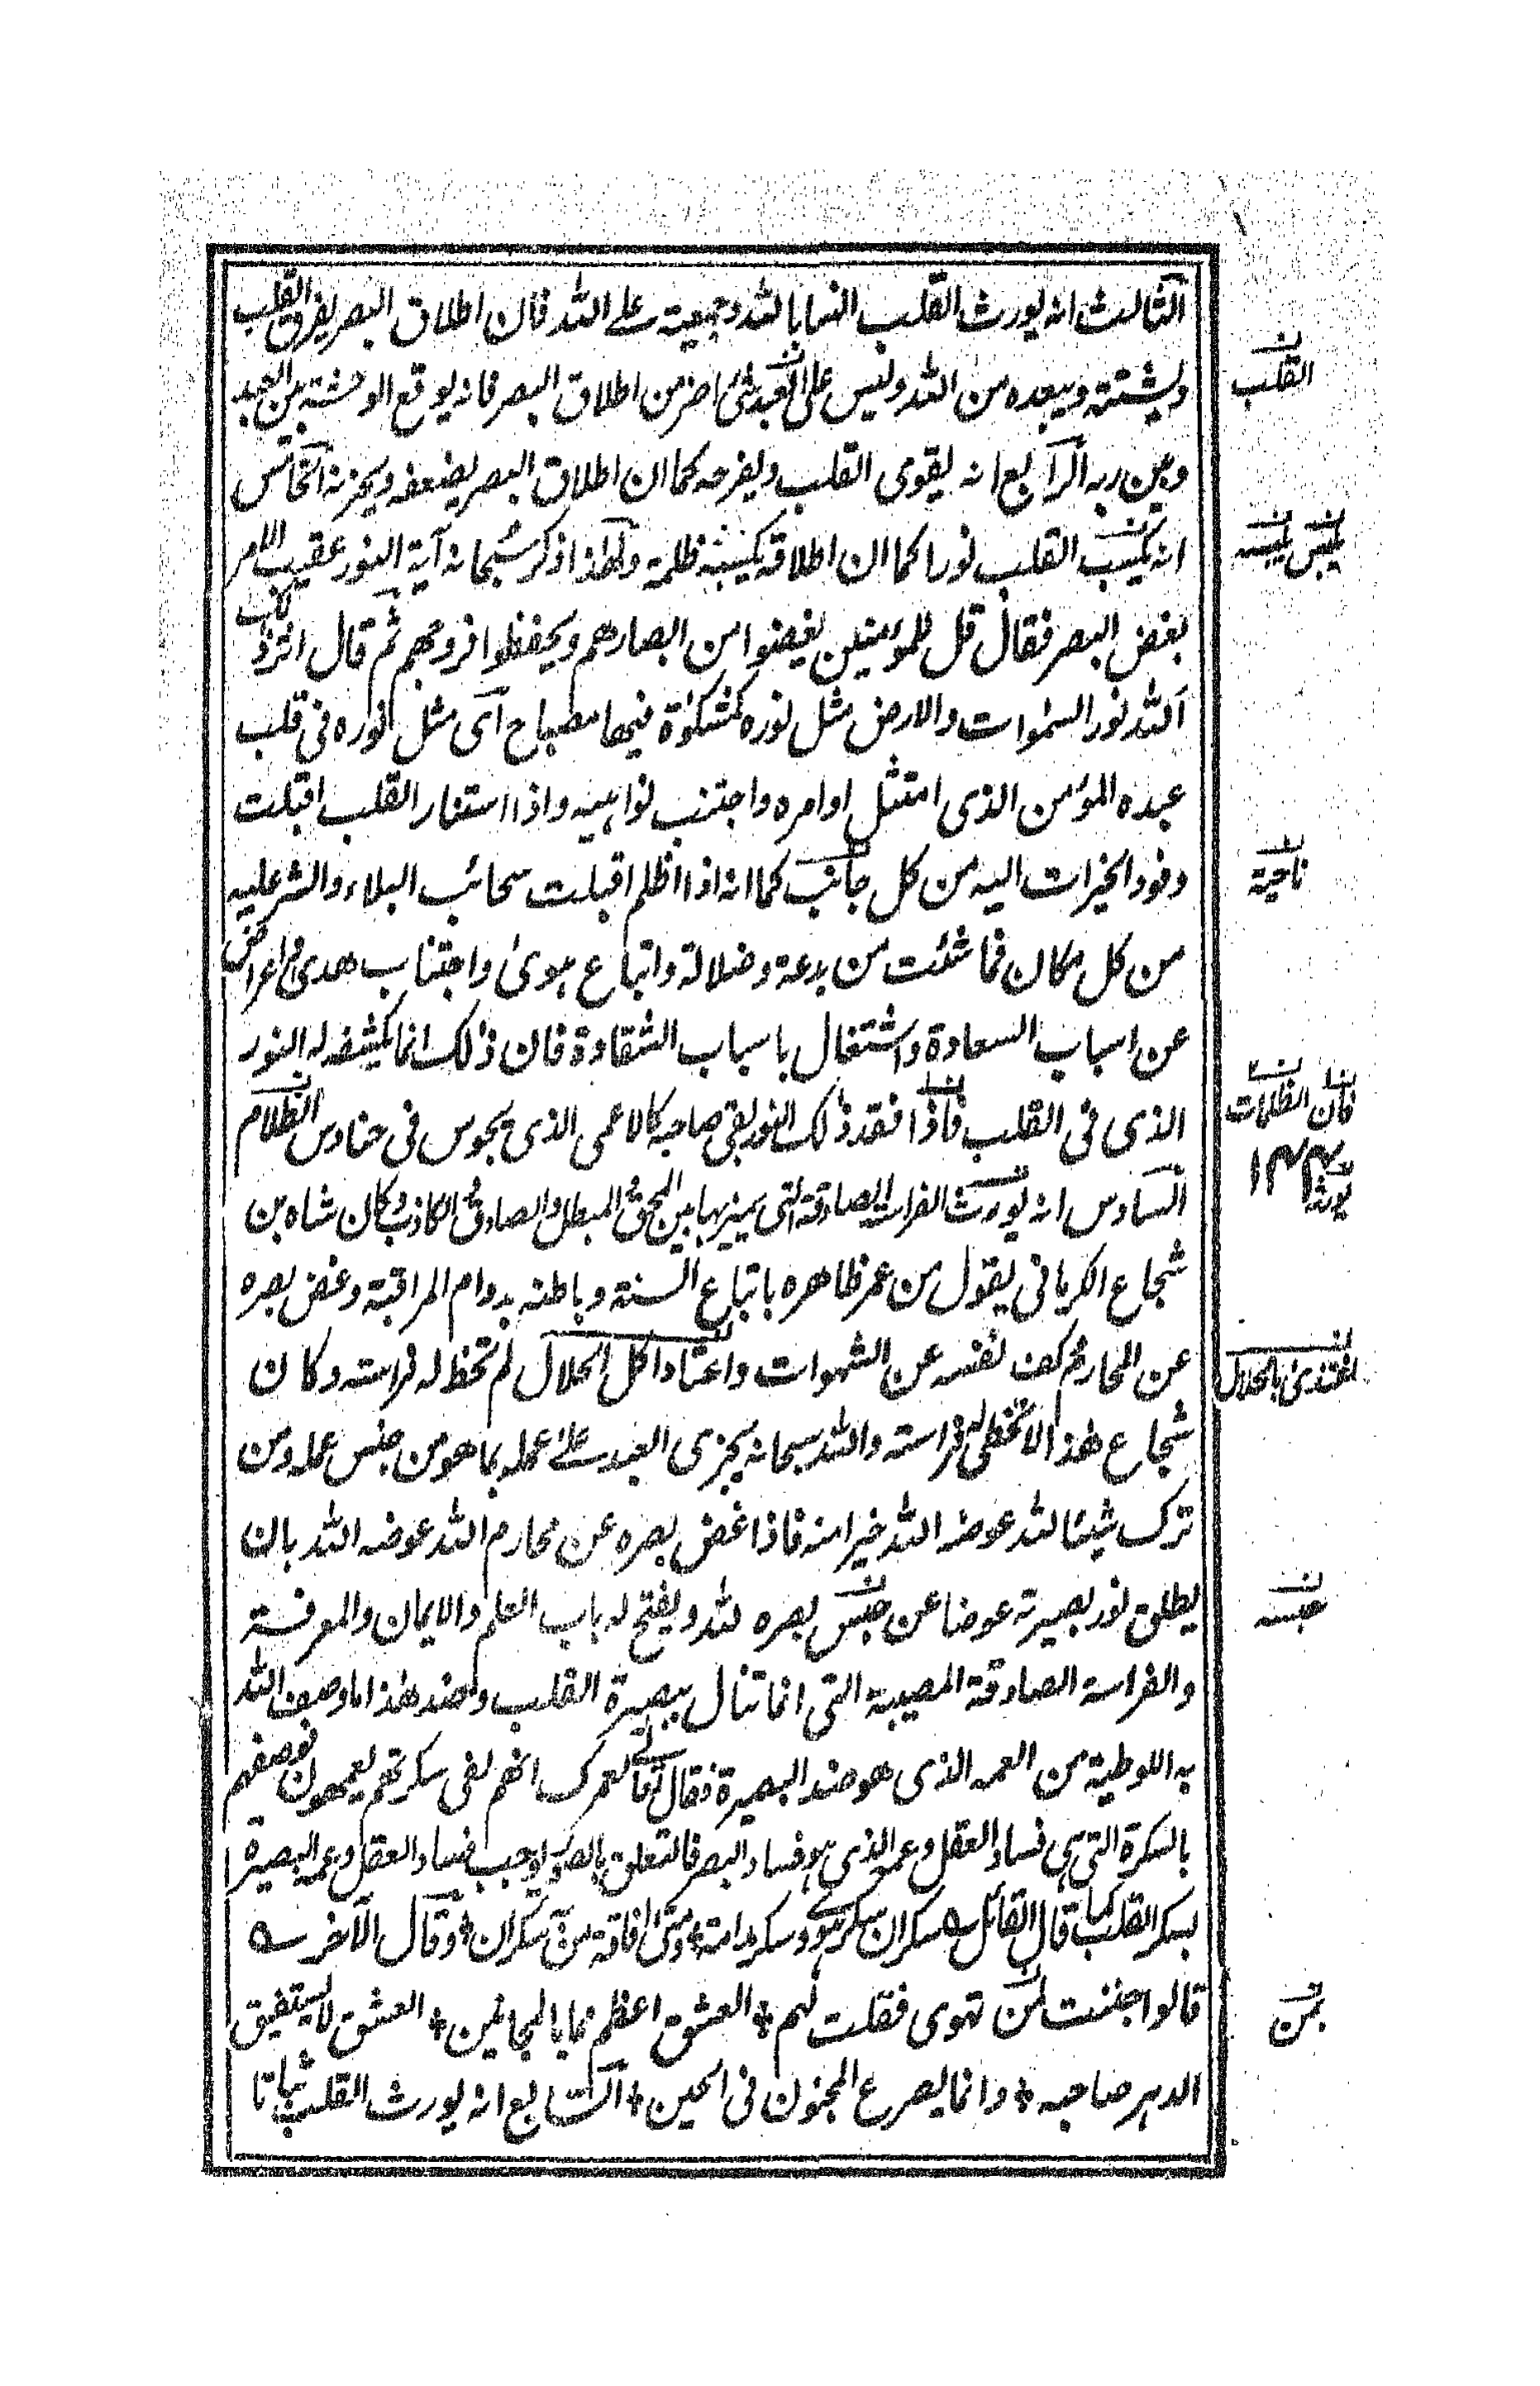 الثالث انه يورث القلب انسا بالله وجمعية على الله فان اطلاق البصر يفرق القلب
ويشتته ويبعده من الله وليس على العبد شئ اضر من اطلاق البصر فانه يوقع الوحشة بين العبد
وبين ربه الرابع انه يقوى القلب ويفرحه كما ان اطلاق البصر يضعفه ويحزنه الخامس
انه يكسب القلب نورا كما ان اطلاقه يكسبه ظلمة ولهذا ذكر سبحانه آية النور عقيب الامر
بغض البصر فقال قل للمؤمنين يغضوا من ابصارهم ويحفظوا فروجهم ثم قال اثر ذلك
الله نور السموات والارض مثل نوره كمشكوة فيها مصباح اى مثل نوره فى قلب
عبده المؤمن الذى امتثل اوامره واجتنب نواهيه واذا استنار القلب اقبلت
وفود الخيرات اليه من كل جانب كما انه اذا اظلم اقبلت سحائب البلاء والشر عليه
من كل مكان فما شئت من بدعة وضلالة واتباع هوى واجتناب هدى واعراض
عن اسباب السعادة واشتغال باسباب الشقاوة فان ذلك انما يكشفه له النور
الذى فى القلب فاذا فقد ذلك النور بقى صاحبه كالاعمى الذى يجوس فى حنادس الظلام
السادس انه يورث الفراسة الصادقة التى يميز بها بين المحق والمبطل والصادق والكاذب وكان شاه بن
شجاع الكرمانى يقول من عمر ظاهره باتباع السنة وباطنه بدوام المراقبة وغض بصره
عن المحارم وكف نفسه عن الشهوات واعتاد اكل الحلال لم تخط له فراسته وكان
شجاع هذا لا تخطى له فراسته والله سبحانه يجزى العبد على عمله بما هو من جنس عمله ومن
ترك شيئا لله عوضه الله خيرا منه فاذا غض بصره عن محارم الله عوضه الله بان
يطلق نور بصيرته عوضا عن حبس بصره لله ويفتح له باب العلم والايمان والمعرفة
والفراسة الصادقة المصيبة التى انما تنال ببصيرة القلب وضد هذا ما وصف الله
به اللوطية من العمه الذى هو ضد البصيرة فقال تعالى لعمرك انهم لفى سكرتهم يعمهون فوصفهم
بالسكرة التى هى فساد العقل وعمه الذى هو فساد البصر فالتعلق بالصور يوجب فساد العقل وعمه البصيرة
بسكر القلب كما قال القائل سكران سكر هوى وسكر مدامة * ومتى افاقة من به سكران * وقال الآخر
قالوا جننت بمن تهوى فقلت لهم * العشق اعظم مما بالمجانين * العشق لا يستفيق
الدهر صاحبه * وانما يصرع المجنون فى الحين * السابع انه يورث القلب ثباتا
القلب
يلبس يلبسه
ناحية
فان الظلمات
١٢٤
يورثه
اغتذى بالحلال
حبسه
بمن